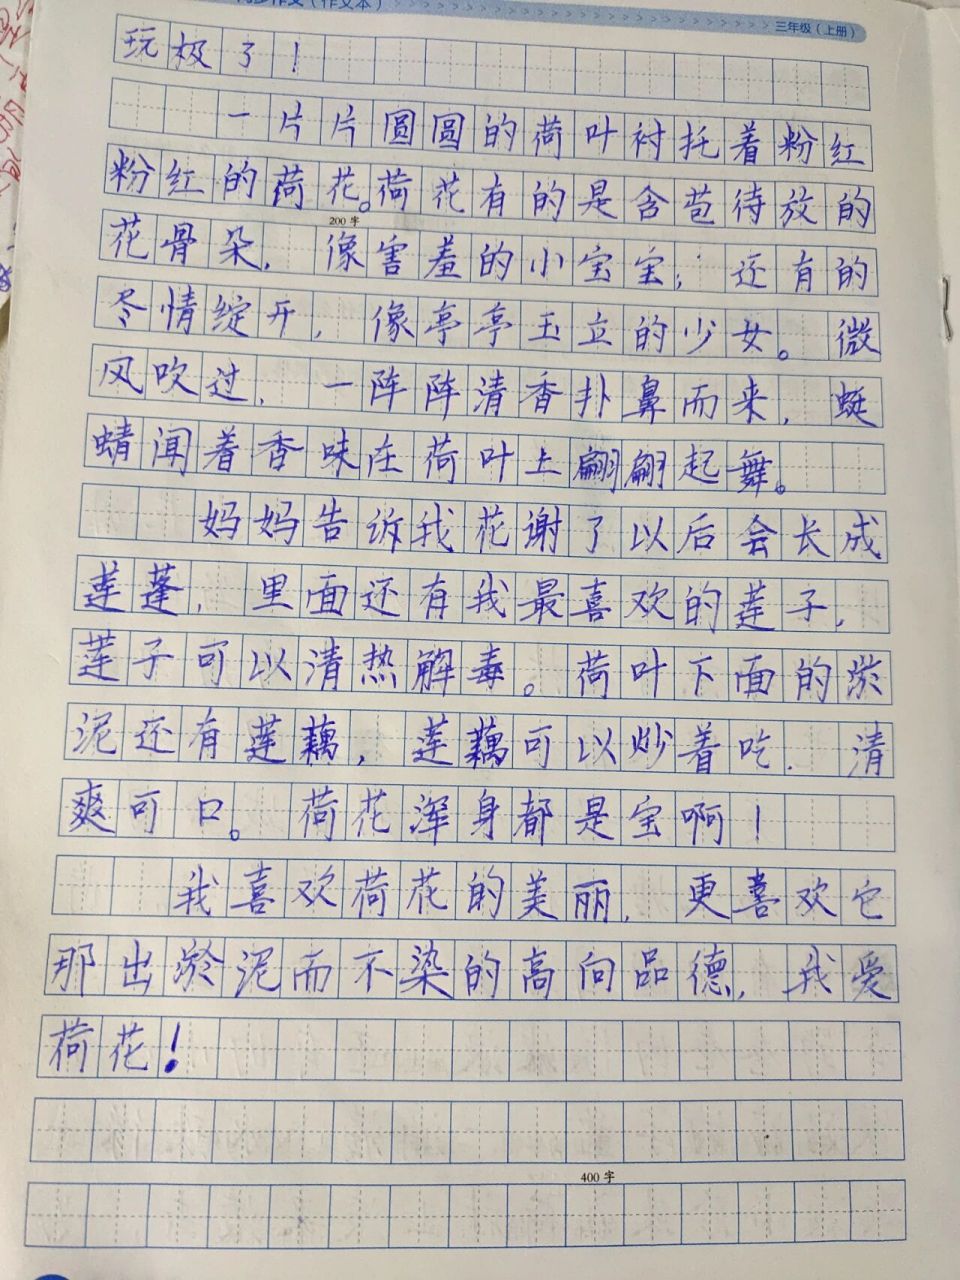 同步作文（作文本） 三年级（上册）
玩极了！
一片片圆圆的荷叶衬托着粉红
粉红的荷花。荷花有的是含苞待放的
200字
花骨朵，像害羞的小宝宝；还有的
尽情绽开，像亭亭玉立的少女。微
风吹过，一阵阵清香扑鼻而来，蜓
蜻闻着香味在荷叶上翩翩起舞。
妈妈告诉我花谢了以后会长成
莲蓬，里面还有我最喜欢的莲子，
莲子可以清热解毒。荷叶下面的淤
泥还有莲藕，莲藕可以炒着吃．清
爽可口。荷花浑身都是宝啊！
我喜欢荷花的美丽，更喜欢它
那出淤泥而不染的高向品德，我爱
荷花！
400字